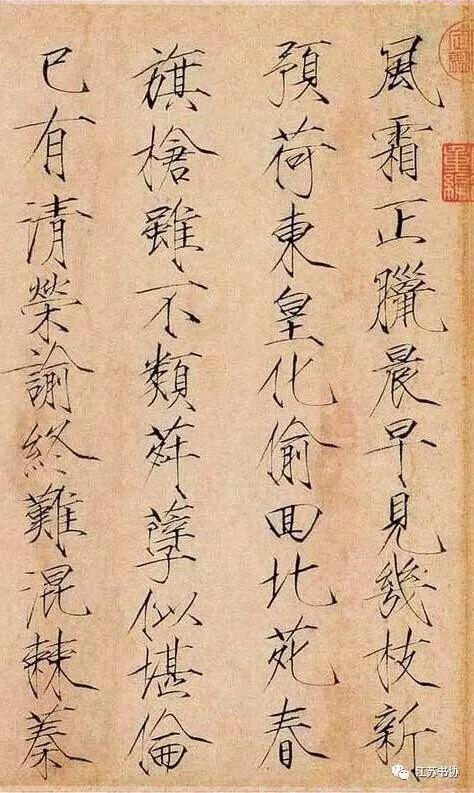 風霜正臘晨早見幾枝新
預荷東皇化偷回北苑春
旗槍雖不類荈孽似堪倫
已有清榮諭終難混棘蓁
江苏书协